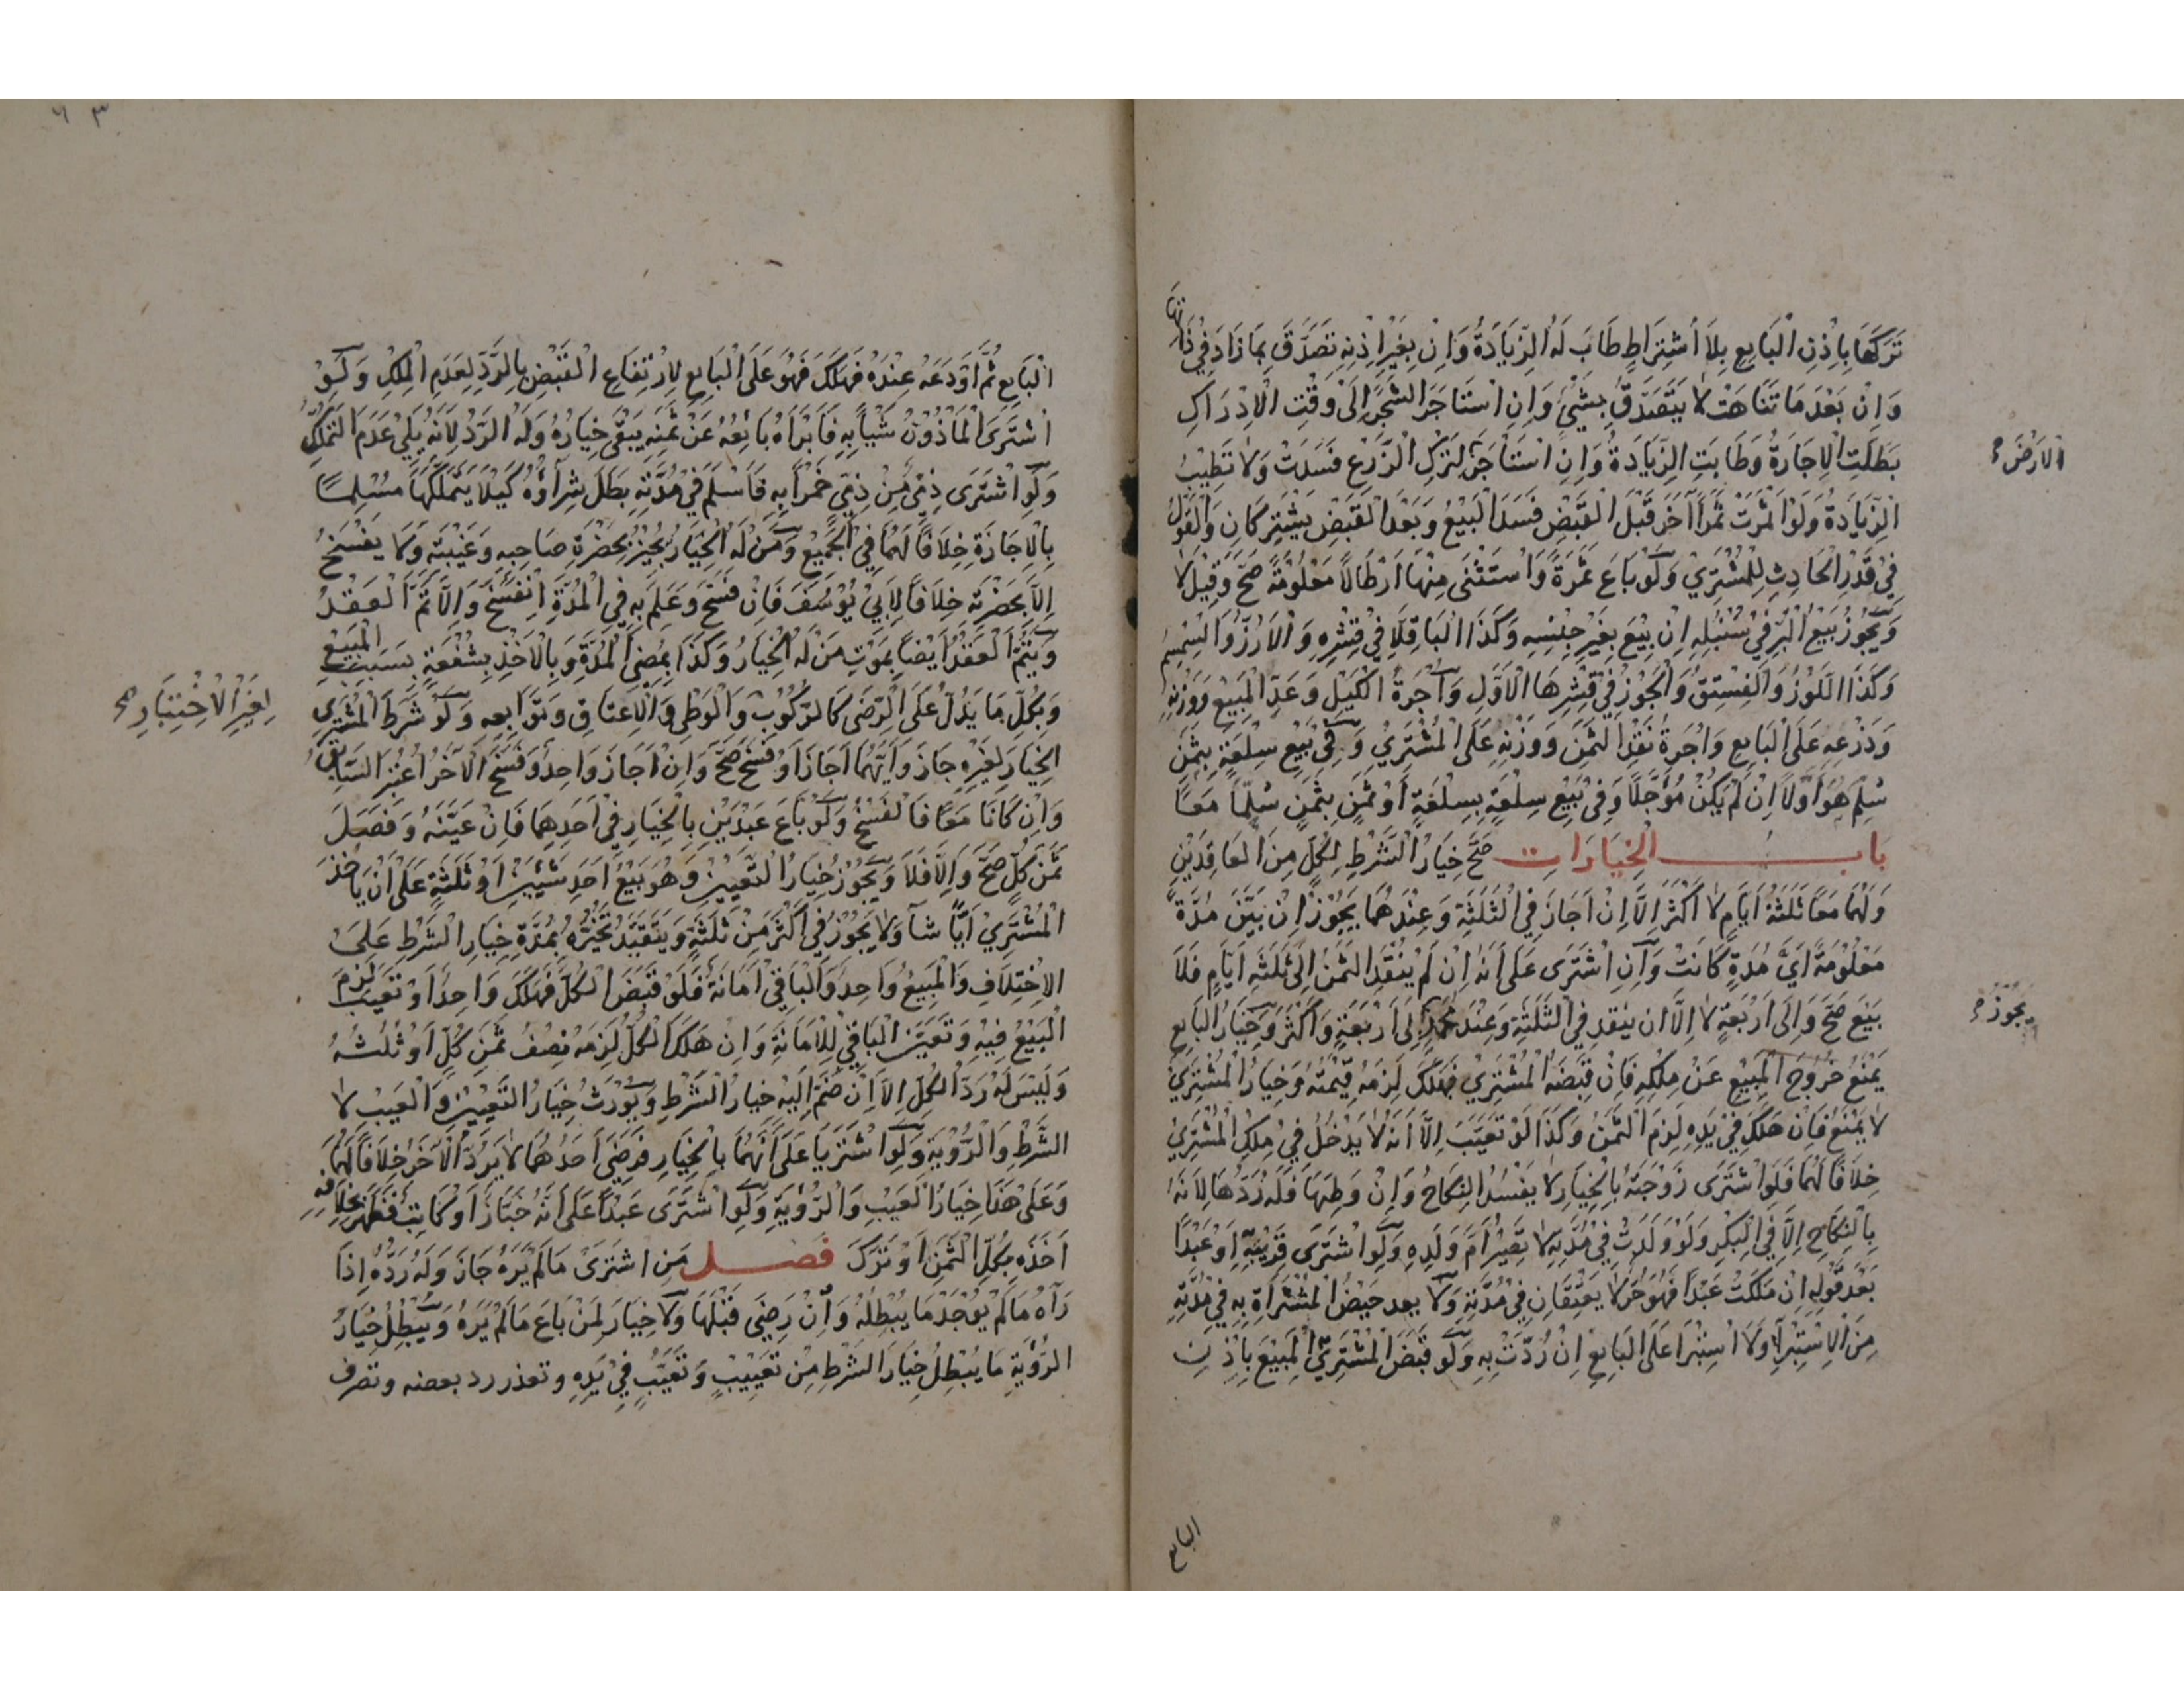 تَرَكَهَا بِاِذْنِ الْبَايِعِ بِلَا اشْتِرَاطٍ طَابَ لَهُ الزِّيَادَةُ وَاِنْ بِغَيْرِ اِذْنِهِ تَصَدَّقَ بِمَا زَادَ فِي ذَاتِهَا
وَاِنْ بَعْدَ مَا تَنَاهَتْ لَا يَتَصَدَّقُ بِشَيْءٍ وَاِنِ اسْتَاجَرَ الشَّجَرَ اِلَى وَقْتِ الْاِدْرَاكِ
بَطَلَتِ الْاِجَارَةُ وَطَابَتِ الزِّيَادَةُ وَاِنِ اسْتَاْجَرَ لِتَرْكِ الزَّرْعِ فَسَدَتْ وَلَا تَطِيْبُ
الْاَرْضَ
الزِّيَادَةُ وَلَوْ اَثْمَرَتْ ثَمَرًا آخَرَ قَبْلَ الْقَبْضِ فَسَدَ الْبَيْعُ وَبَعْدَ الْقَبْضِ يَشْتَرِكَانِ وَالْقَوْلُ
فِي قَدْرِ الْحَادِثِ لِلْمُشْتَرِي وَلَوْ بَاعَ ثَمَرَةً وَاسْتَثْنَى مِنْهَا اَرْطَالًا مَعْلُومَةً صَحَّ وَقِيْلَ لَا
وَيَجُوْزُ بَيْعُ الْبُرِّ فِيْ سُنْبُلِهِ اِنْ بِيْعَ بِغَيْرِ جِنْسِهِ وَكَذَا الْبَاقِلَا فِيْ قِشْرِهِ وَالْاَرُزُّ وَالسِّمْسِمُ
وَكَذَا اللَّوْزُ وَالْفِسْتِقُ وَالْجَوْزُ فِيْ قِشْرِهَا الْاَوَّلِ وَاُجْرَةُ الْكَيْلِ وَعَدِّ الْمَبِيْعِ وَوَزْنِهِ
وَذَرْعِهِ عَلَى الْبَايِعِ وَاُجْرَةُ نَقْدِ الثَّمَنِ وَوَزْنِهِ عَلَى الْمُشْتَرِيْ وَفِيْ بَيْعِ سِلْعَةٍ بِثَمَنٍ
سُلِّمَ هُوَ اَوَّلًا اِنْ لَمْ يَكُنْ مُؤَجَّلًا وَفِيْ بَيْعِ سِلْعَةٍ بِسِلْعَةٍ اَوْ ثَمَنٍ بِثَمَنٍ سُلِّمَا مَعًا
باب الْخِيَارَاتِ صَحَّ خِيَارُ الشَّرْطِ لِكُلٍّ مِنَ الْعَاقِدَيْنِ
وَلَهُمَا مَعًا ثَلٰثَةُ اَيَّامٍ لَا اَكْثَرَ اِلَّا اِنْ اَجَازَ فِي الثَّلٰثَةِ وَعِنْدَهُمَا يَجُوْزُ اِنْ بَيَّنَ مُدَّةً
مَعْلُوْمَةً اَيَّ مُدَةٍ كَانَتْ وَاِنِ اشْتَرَى عَلَى اَنَّهُ اِنْ لَمْ يَنْقُدِ الثَّمَنَ اِلَى ثَلٰثَةِ اَيَّامٍ فَلَا
بَيْعَ صَحَّ وَاِلَى اَرْبَعَةٍ لَا اِلَّا ان ينقد فِي الثَّلٰثَةِ وَعِنْدَ مُحَمَّدٍ اِلَى اَرْبَعَةٍ وَاَكْثَرَ وَخِيَارُ الْبَايِعِ
يَجُوْزُ
يَمْنَعُ خُرُوْجَ الْمَبِيْعِ عَنْ مِلْكِهِ فَاِنْ قَبَضَهُ الْمُشْتَرِيْ فَهَلَكَ لَزِمَهُ قِيْمَتُهُ وَخِيَارُ الْمُشْتَرِيْ
لَا يَمْنَعُ فَاِنْ هَلَكَ فِيْ يَدِهِ لَزِمَ الثَّمَنُ وَكَذَا لَوْ تَعَيَّبَ اِلَّا اَنَّهُ لَا يَدْخُلُ فِيْ مِلْكِ الْمُشْتَرِيْ
خِلَافًا لَهُمَا فَلَوِ اشْتَرَى زَوْجَتَهُ بِالْخِيَارِ لَا يَفْسُدُ النِّكَاحُ وَاِنْ وَطِئَهَا فَلَهُ رَدُّهَا لِاَنَّهُ
بِالنِّكَاحِ اِلَّا فِي الْبِكْرِ وَلَوْ وَلَدَتْ فِيْ مُدَّتِهِ لَا تَصِيْرُ اُمَّ وَلَدِهِ وَلَوِ اشْتَرَى قَرِيْبَهُ اَوْ عَبْدًا
بَعْدَ قَوْلِهِ اِنْ مَلَكْتُ عَبْدًا فَهُوَ حُرٌّ لَا يَعْتِقَانِ فِيْ مُدَّتِهِ وَلَا يعد حَيْضُ الْمُشْتَرَاةِ بِهِ فِيْ مُدَّتِهِ
مِنَ الْاِسْتِبْرَاءِ وَلَا اسْتِبْرَا عَلَى الْبَايِعِ اِنْ رُدَّتْ بِهِ وَلَوْ قَبَضَ الْمُشْتَرِيْ الْمَبِيْعَ بِاِذْنِ
البايع
٦٣
الْبَايِعِ ثُمَّ اَوْدَعَهُ عِنْدَهُ فَهَلَكَ فَهُوَ عَلَى الْبَايِعِ لِارْتِفَاعِ الْقَبْضِ بِالرَّدِّ لِعَدَمِ الْمِلْكِ وَلَوْ
اشْتَرَى الْمَاْذُوْنُ شَيْأً بِهِ فَاَبْرَاَهُ بَائِعُهُ عَنْ ثَمَنِهِ يَبْقَى خِيَارُهُ وَلَهُ الرَّدُّ لِاَنَّهُ يَلِيْ عَدَمَ التَّمَلُّكِ
وَلَوِ اشْتَرَى ذِمِّيٌّ مِنْ ذِمِّيٍّ خَمْرًا بِهِ فَاَسْلَمَ فِيْ مُدَّتِهِ بَطَلَ شِرَاؤُهُ كَيْلَا يَتَمَلَّكَهَا مُسْلِمًا
بِالْاِجَازَةِ خِلَافًا لَهُمَا فِي الْجَمِيْعِ وَمَنْ لَهُ الْخِيَارُ يُجِيْزُ بِحَضْرَةِ صَاحِبِهِ وَغَيْبَتِهِ وَلَا يَفْسَخُ
اِلَّا بِحَضْرَتِهِ خِلَافًا لِاَبِيْ يُوْسُفَ فَاِنْ فَسَخَ وَعَلِمَ بِهِ فِي الْمُدَّةِ انْفَسَخَ وَاِلَّا تَمَّ الْعَقْدُ
وَيَتِمُّ الْعَقْدُ اَيْضًا بِمَوْتِ مَنْ لَهُ الْخِيَارُ وَكَذَا بِمُضِيِّ الْمُدَّةِ وَبِالْاَخْذِ بِشُفْعَةٍ بِسَبَبِ الْمَبِيْعِ
وَبِكُلِّ مَا يَدُلُّ عَلَى الرِّضَى كَالرُّكُوْبِ وَالْوَطْىِ وَالْاِعْتَاقِ وَتَوَابِعِهِ وَلَوْ شَرَطَ الْمُشْتَرِي
لِغَيْرِ الْاِخْتِبَارِ
الْخِيَارَ لِغَيْرِهِ جَازَ وَاَيُّهُمَا اَجَازَ اَوْ فَسَخَ صَحَّ وَاِنْ اَجَازَ وَاحِدٌ وَفَسَخَ الْآخَرُ اعْتُبِرَ السَّابِقُ
وَاِنْ كَانَا مَعًا فَالْفَسْخُ وَلَوْ بَاعَ عَبْدَيْنِ بِالْخِيَارِ فِيْ اَحَدِهِمَا فَاِنْ عَيَّنَهُ وَفَصَّلَ
ثَمَنَ كُلٍّ صَحَّ وَاِلَّا فَلَا وَيَجُوْزُ خِيَارُ التَّعْيِيْنِ وَهُوَ بَيْعُ اَحَدِ شَيْئَيْنِ اَوْ ثَلٰثَةٍ عَلَى اَنْ يَاْخُذَ
الْمُشْتَرِيْ اَيًّا شَآءَ وَلَا يَجُوْزُ فِيْ اَكْثَرَ مِنْ ثَلٰثَةٍ وَيَتَقَيَّدُ تَخَيُّرُهُ بِمُدَّةِ خِيَارِ الشَّرْطِ عَلَى
الْاِخْتِلَافِ وَالْمَبِيْعُ وَاحِدٌ وَالْبَاقِيْ اَمَانَةٌ فَلَوْ قَبَضَ الْكُلَّ فَهَلَكَ وَاحِدٌ اَوْ تَعَيَّبَ لَزِمَ
الْبَيْعُ فِيْهِ وَتَعَيَّنَ الْبَاقِيْ لِلْاَمَانَةِ وَاِنْ هَلَكَ الْكُلُّ لَزِمَهُ نِصْفُ ثَمَنِ كُلٍّ اَوْ ثُلُثُهُ
وَلَيْسَ لَهُ رَدُّ الْكُلِّ اِلَّا اِنْ ضَمَّ اِلَيْهِ خِيَارُ الشَّرْطِ وَيُوْرَثُ خِيَارُ التَّعْيِيْنِ وَالْعَيْبِ لَا
الشَّرْطِ وَالرُّؤْيَةِ وَلَوِ اشْتَرَيَا عَلَى اَنَّهُمَا بِالْخِيَارِ فَرَضِيَ اَحَدُهُمَا لَا يَرُدُّ الْآخَرُ خِلَافًا لَهُمَا
وَعَلَى هَذَا خِيَارُ الْعَيْبِ وَالرُّؤْيَةِ وَلَوِ اشْتَرَى عَبْدًا عَلَى اَنَّهُ خَبَّازٌ اَوْ كَاتِبٌ فَظَهَرَ بِخِلَافِهِ
اَخَذَهُ بِكُلِّ الثَّمَنِ اَوْ تَرَكَ فَصل مَنِ اشْتَرَى مَا لَمْ يَرَهُ جَازَ وَلَهُ رَدُّهُ اِذَا
رَآهُ مَا لَمْ يُوْجَدْ مَا يُبْطِلُهُ وَاِنْ رَضِيَ قَبْلَهَا وَلَا خِيَارَ لِمَنْ بَاعَ مَا لَمْ يَرَهُ وَيُبْطِلُ خِيَارَ
الرُّؤْيَةِ مَا يُبْطِلُ خِيَارَ الشَّرْطِ مِنْ تَعْيِيْبٍ وَتَعَيُّبٍ فِيْ يَدِهِ وتعذر رد بعضه وتصرف